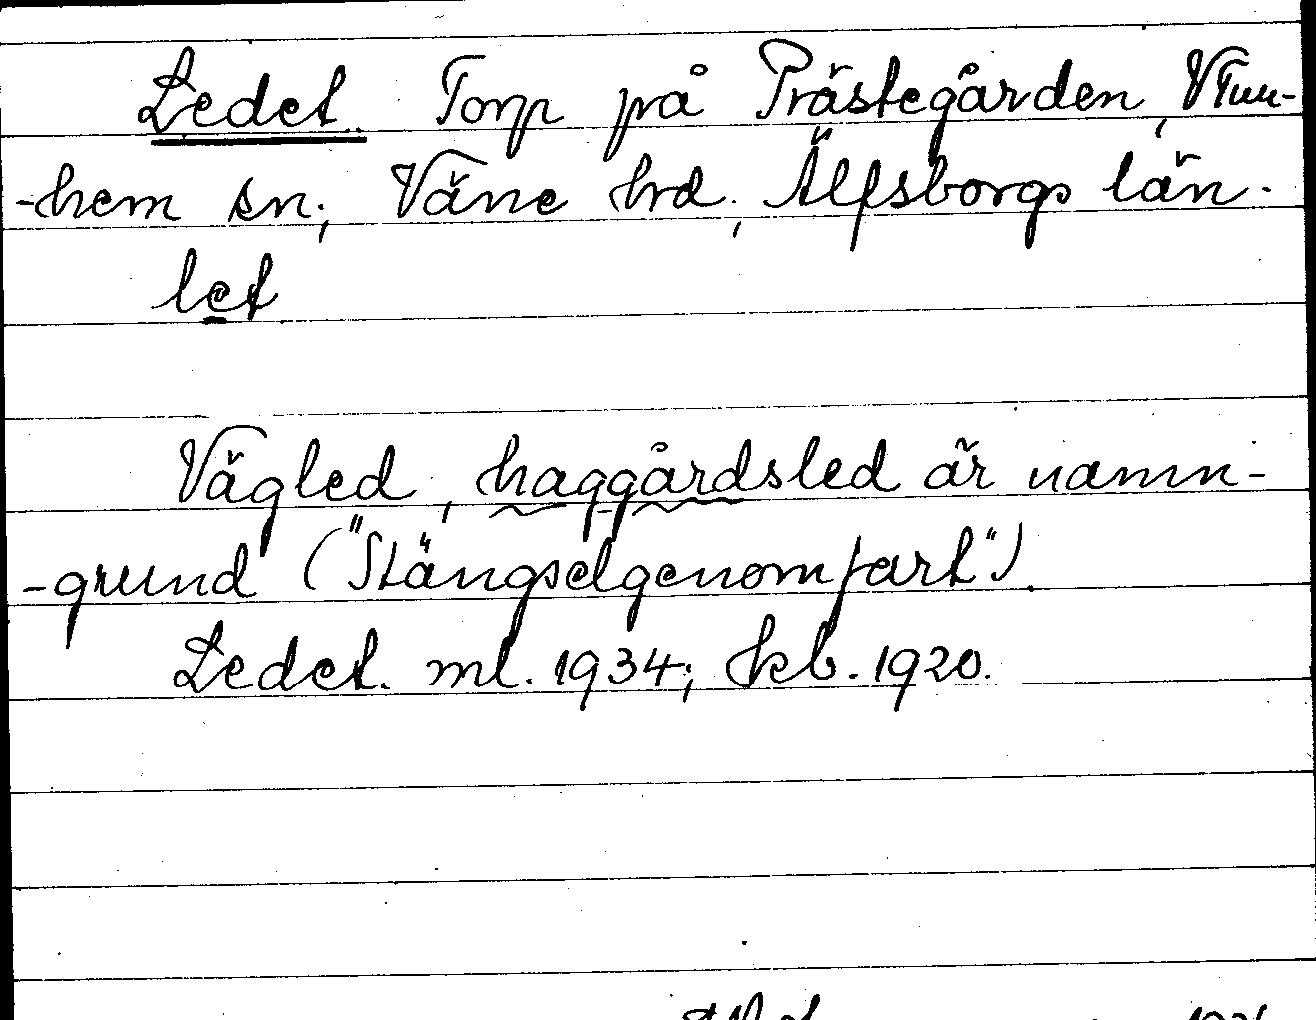 Ledet. Torp på Prästegården, VTun-
-hem sn; Väne hrd., Älfsborgs län.
let
Vägled, haggårdsled är namn-
-grund ("Stängselgenomfart").
Ledet. ml. 1934; kb. 1920.